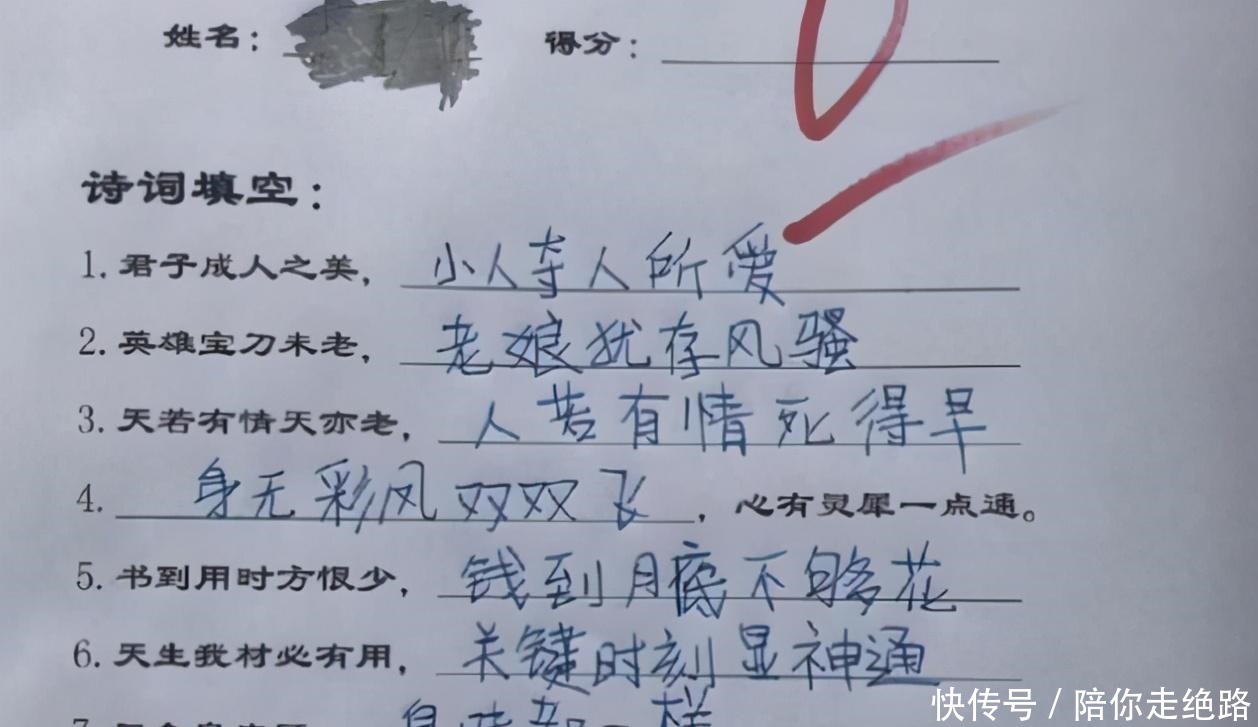 姓名： 得分：
诗词填空：
1. 君子成人之美，小人夺人所爱
2. 英雄宝刀未老，老娘犹存风骚
3. 天若有情天亦老，人若有情死得早
4. 身无彩风双双飞，心有灵犀一点通。
5. 书到用时方恨少，钱到月底不够花
6. 天生我材必有用，关键时刻显神通
7.
快传号 / 陪你走绝路